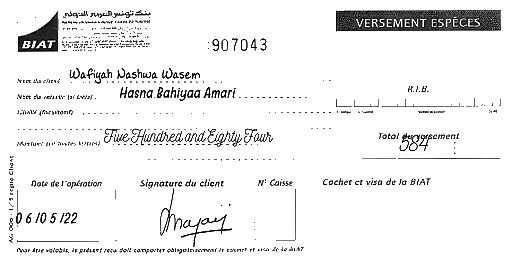 بنك تونس العربي الدولي
BIAT
VERSEMENT ESPÈCES
907043
Nom du client Wafiyah Nashwa Wasem
Hasna Bahiyaa Amari
R.I.B.
Libellé (facultatif)
Montant (en toutes lettres) Five Hundred and Eighty Four
Total du versement
584
Date de l'opération Signature du client N° Caisse Cachet et visa de la BIAT
06/05/22
Pour être valable, le présent reçu doit comporter obligatoirement le cachet et visa de la BIAT